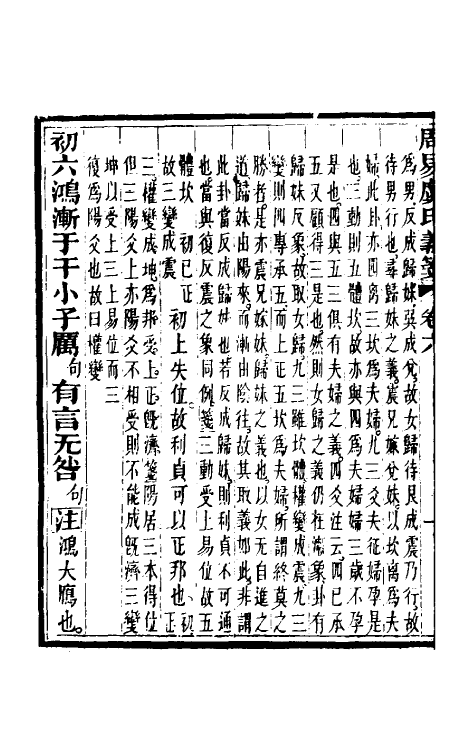 周易虞氏義箋 卷六
爲男反成歸妹巽成兌故女歸待艮成震乃行故
待男行也尋歸妹之義震兄嫁兌妹以坎離爲夫
婦此卦亦四离三坎爲夫婦九三爻夫征婦孕是
也三動則五體坎故亦與四爲夫婦婦三歲不孕
是也四與五三俱有夫婦之義四爻注云四已承
五又顧得三是也然則女歸之義仍在漸象卦有
歸妹反象故取女歸九三雖坎體權變成震九三
變則四專承五而上正五坎爲夫婦所謂終莫之
勝者是亦震兄嫁妹歸妹之義也以女无自進之
道歸妹由陽來漸由陰往故其取義如此非謂
此卦當反成歸妹也若反成歸妹則利貞不可通
也當與復反震之象同例箋三動受上易位故五
體坎 初已正 初上失位故利貞可以正邦也 初
故三變成震 正
三權變成坤爲邦受上正旣濟箋陽居三本得位
但三陽爻上亦陽爻不相受則不能成旣濟三變
坤以受上三與上易位而三
復爲陽爻也故曰權變
初六鴻漸于干小子厲句有言无咎句注鴻大鴈也